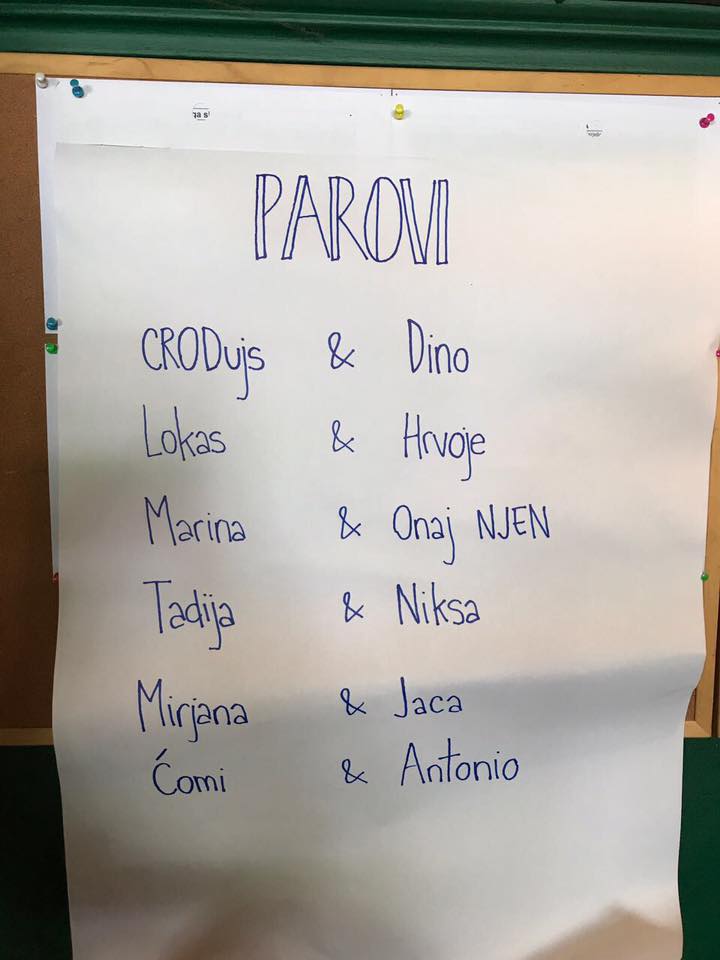 PAROVI
CRODujs & Dino
Lokas & Hrvoje
Marina & Onaj NJEN
Tadija & Niksa
Mirjana & Jaca
Ćomi & Antonio